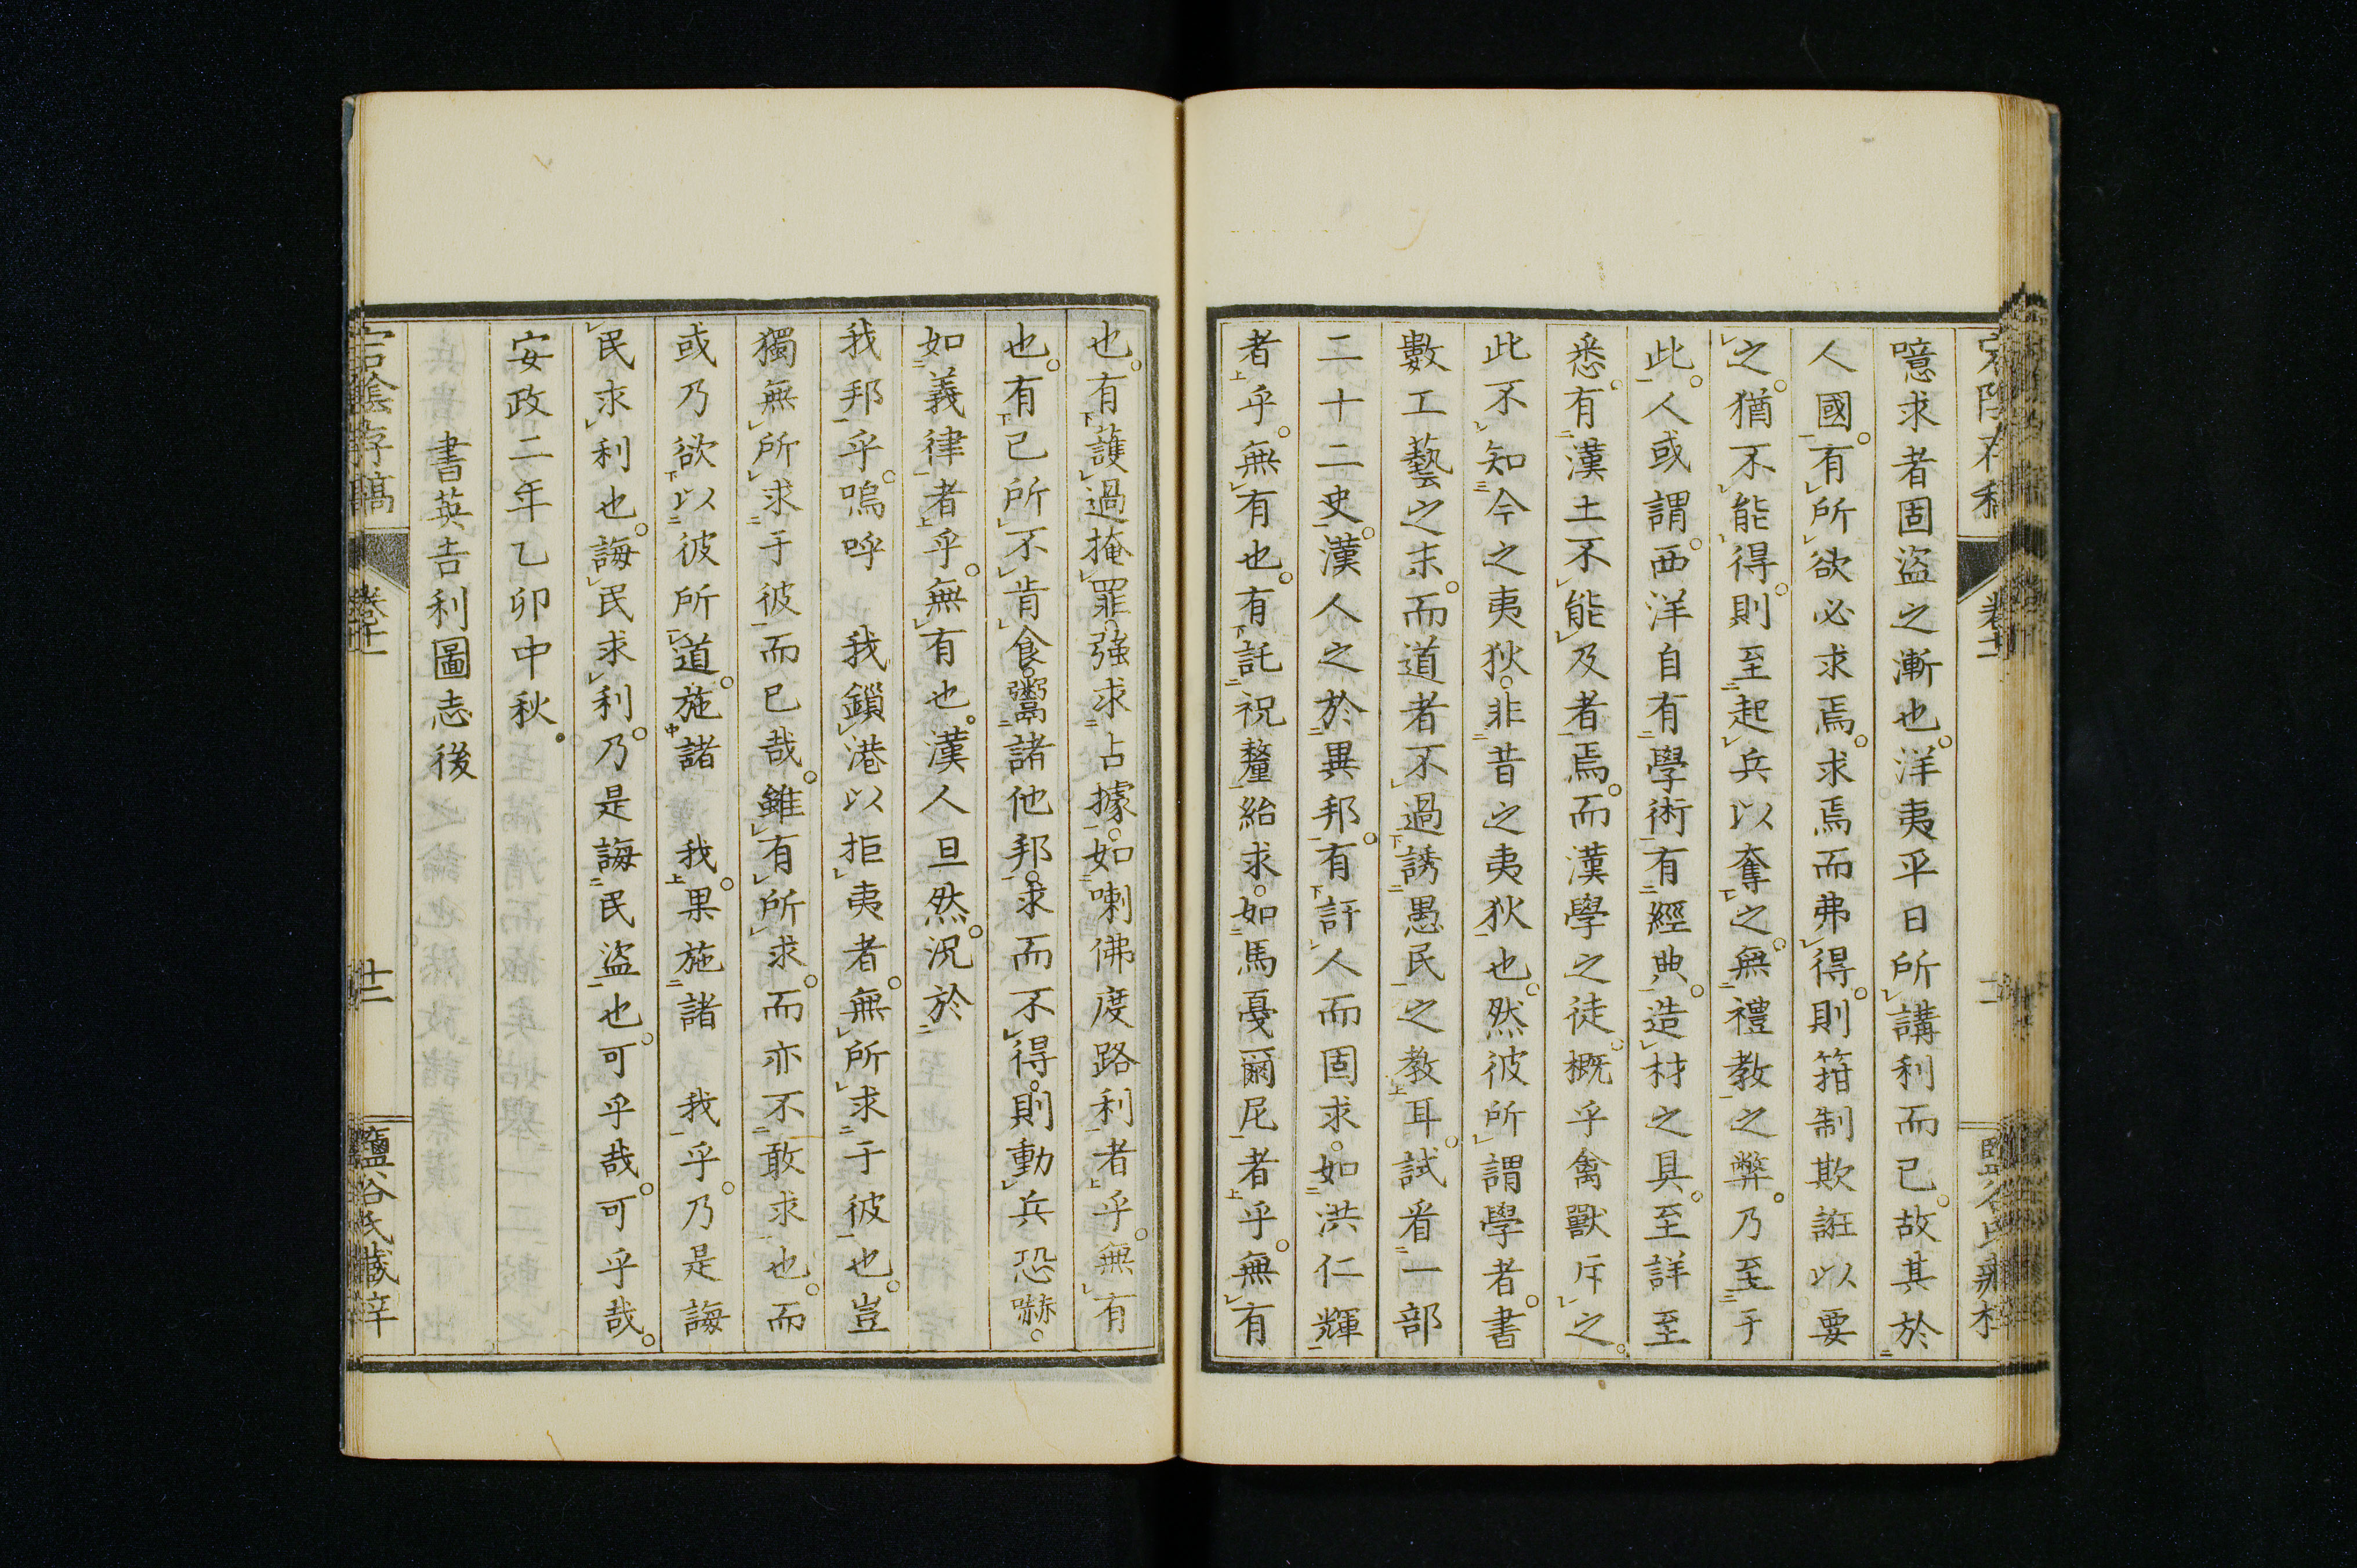 噫求者固盜之漸也。洋夷平日所講利而已。故其於
人國。有所欲必求焉。求焉而弗得。則箝制欺誑以要
之。猶不能得。則至起兵以奪之。無禮教之弊。乃至于
此。人或謂。西洋自有學術有經典。造材之具。至詳至
悉。有漢土不能及者焉。而漢學之徒。概乎禽獸斥之。
此不知今之夷狄。非昔之夷狄也。然彼所謂學者。書
數工藝之末。而道者不過誘愚民之教耳。試看一部
二十二史。漢人之於異邦。有訐人而固求。如洪仁輝
者乎。無有也。有託祝釐紿求。如馬戛爾尼者乎。無有
也。有護過掩罪。強求占據。如喇佛度路利者乎。無有
也。有已所不肯食。鬻諸他邦。求而不得。則動兵恐嚇。
如義律者乎。無有也。漢人旦然。況於
我邦乎。嗚呼 我鎖港以拒夷者。無所求于彼也。豈
獨無所求于彼而已哉。雖有所求。而亦不敢求也。而
或乃欲以彼所道。施諸 我。果施諸 我乎。乃是誨
民求利也。誨民求利。乃是誨民盜也。可乎哉。可乎哉。
安政二年乙卯中秋。
書英吉利圖志後
宕陰存稿 卷十一 十二 鹽谷氏藏梓